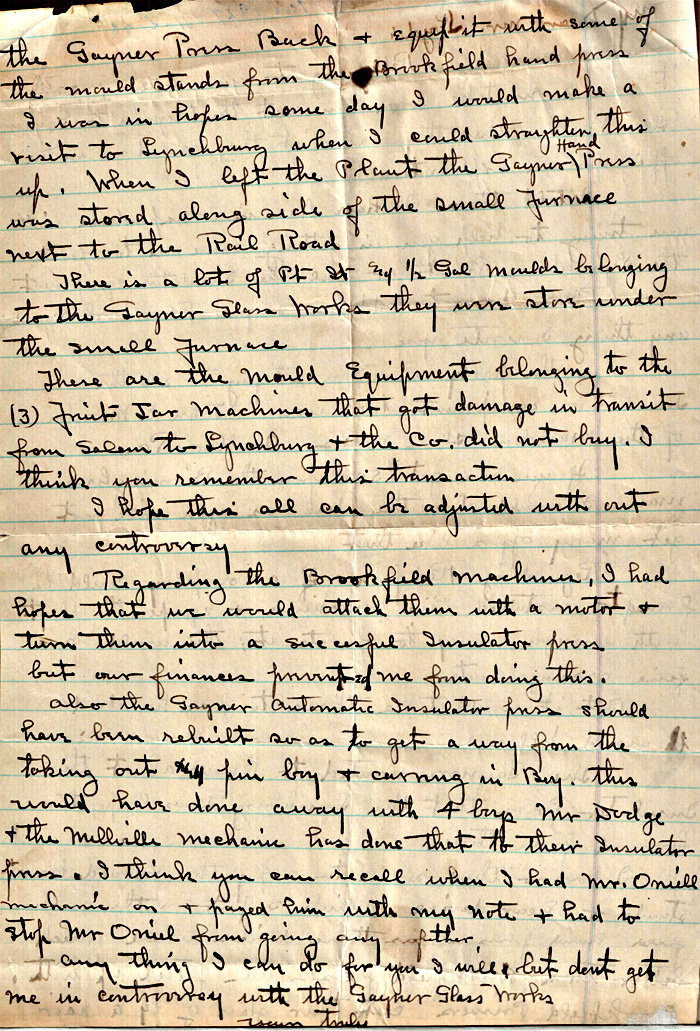 the Gayner Press Back + equip it with some of
the mould stands from the Brookfield hand press
I was in hopes some day I would make a
visit to Lynchburg when I could straghten this
up. When I left the Plant the Gayner Hand Press
was stored along side of the small Furnace
next to the Rail Road
There is a lot of Pt Qt Eq 1/2 Gal moulds belonging
to the Gayner Glass Works they were store under
the small Furnace
There are the mould Equipment belonging to the
(3) Fruit Jar Machines that got damage in transit
from Salem to Lynchburg + the Co. did not buy. I
think you remember this transaction
I hope this all can be adjusted with out
any controversy
Regarding the Brookfield machines, I had
hopes that we would attach them with a motor +
turn them into a succesful Insulator press
but our finances prevented me from doing this.
also the Gayner Automatic Insulator press should
have been rebuilt so as to get a way from the
taking out pin boy + carring in Boy. this
would have done away with 4 boys Mr Dodge
+ the Millville mechanic has done that to their Insulator
press. I think you can recall when I had Mr. Oniell
mechanic on + payed him with my note + had to
stop Mr Oniel from going any
any thing I can do for you I will, but dont get
me in controversy with the Gayner Glass Works
yours truly